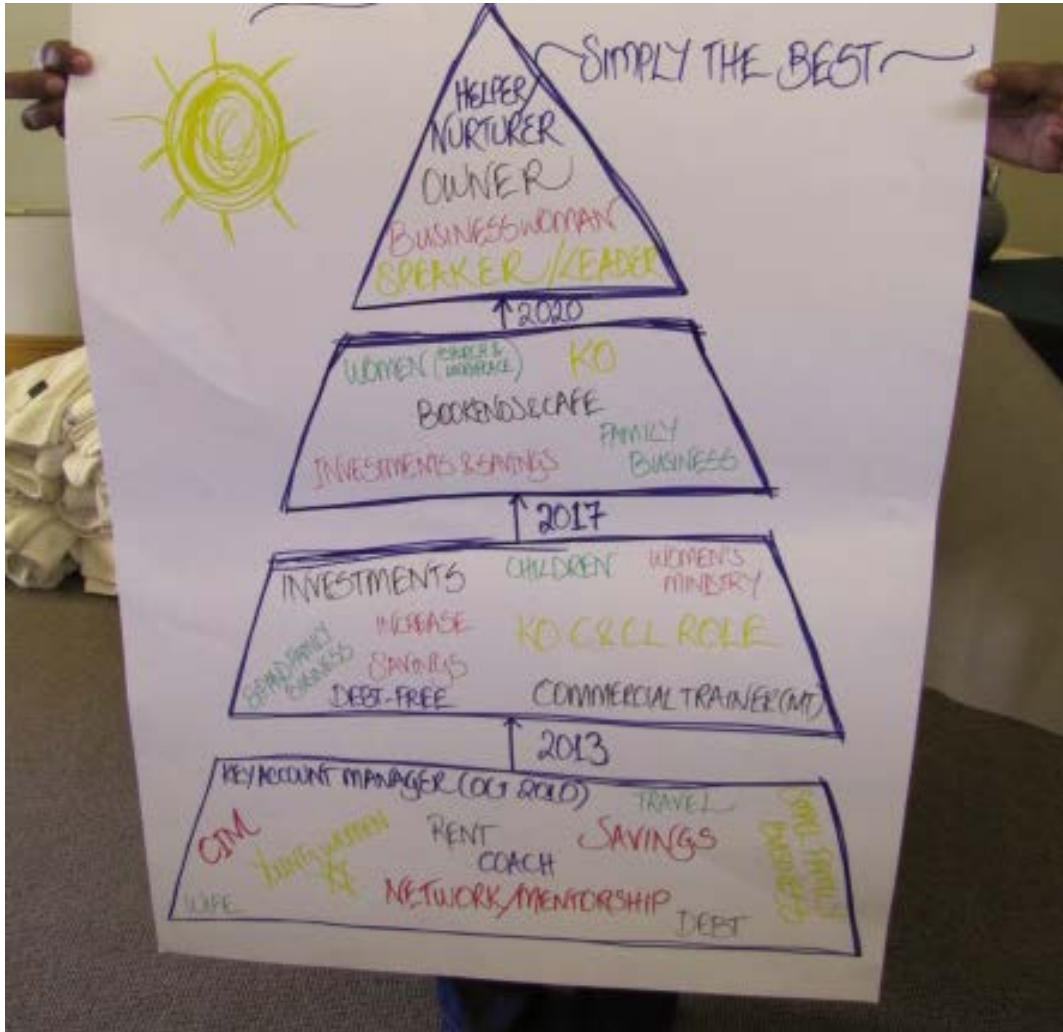 SIMPLY THE BEST
HELPER/
NURTURER
OWNER
BUSINESSWOMAN
SPEAKER/LEADER
2020
WOMEN (CHURCH &
WORKPLACE)
KO
BOOKENDS & CAFE
INVESTMENTS & SAVINGS
FAMILY
BUSINESS
2017
INVESTMENTS
CHILDREN
WOMEN'S
MINISTRY
INCREASE
SAVINGS
KO C&CL ROLE
FAMILY
BUSINESS
DEBT-FREE
COMMERCIAL TRAINER (MT)
2013
KEY ACCOUNT MANAGER (OCT 2010)
TRAVEL
CIM
YOUNG WOMEN
RENT
COACH
SAVINGS
SMALL FAMILY
BUSINESS
NETWORK/MENTORSHIP
WIFE
DEBT